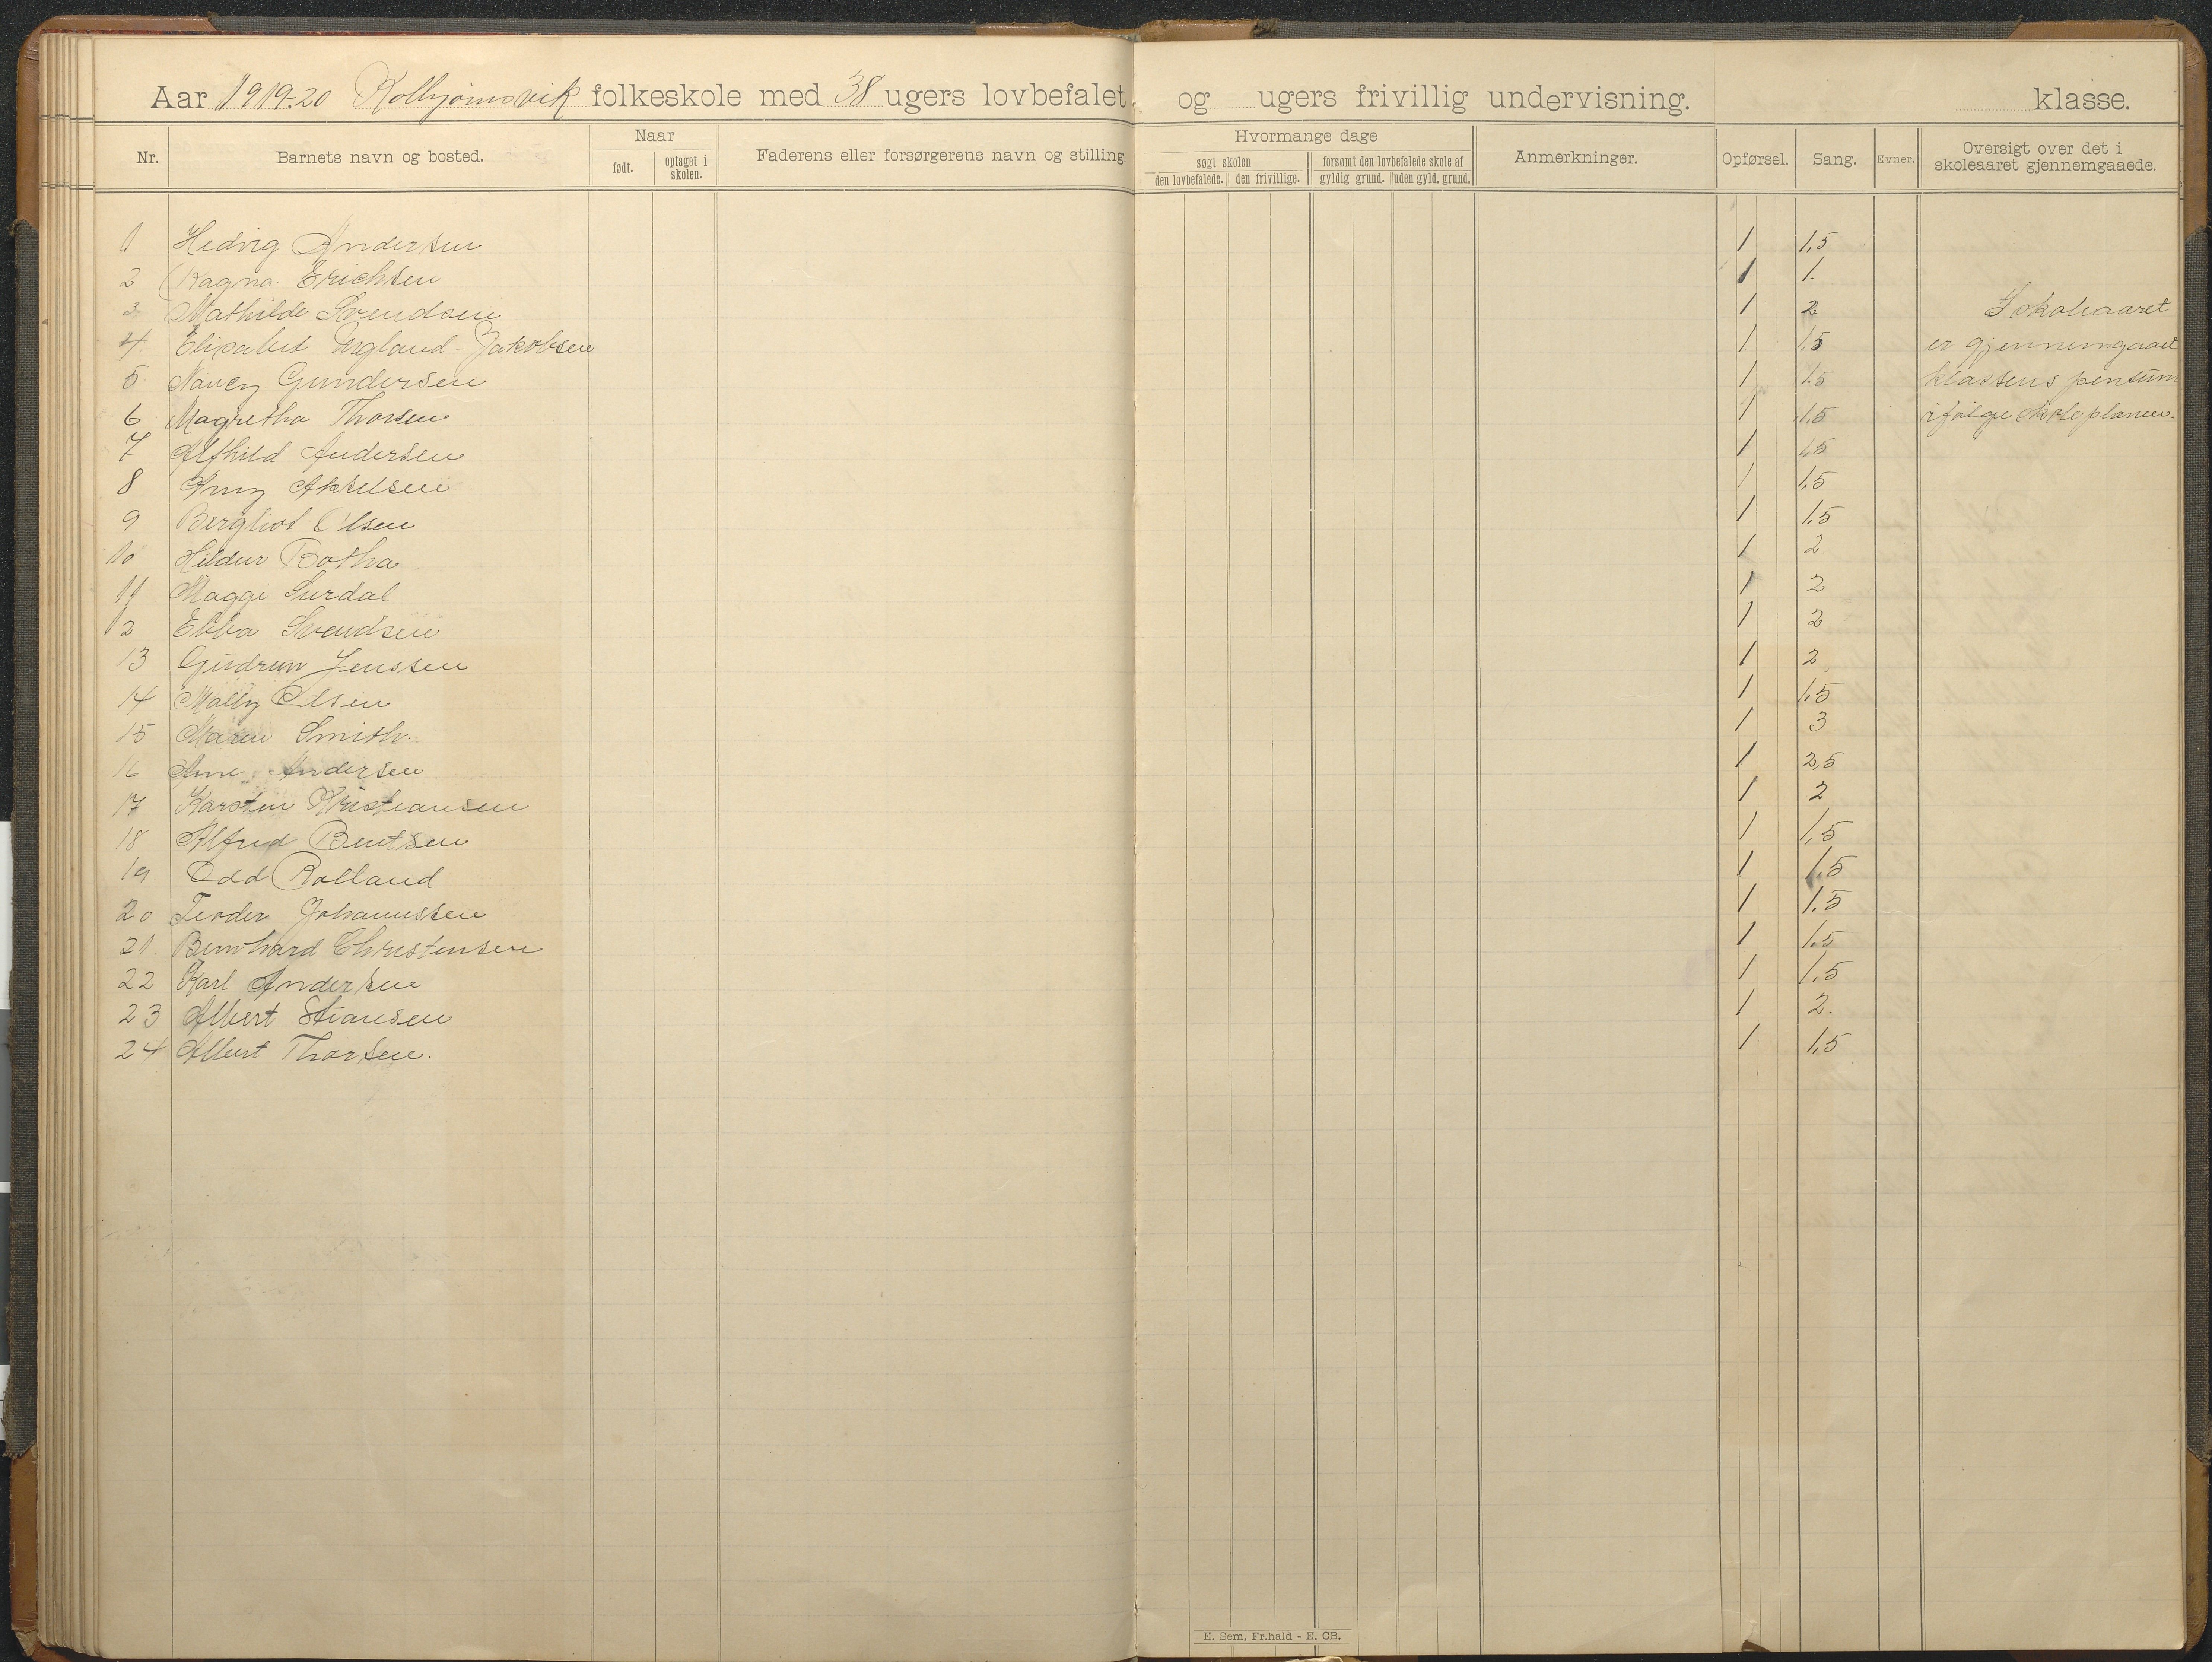 Aar 1919-20 Kolbjørnsvik folkeskole med 38 ugers lovbefalet og ugers frivillig undervisning. klasse.
Nr. Barnets navn og bosted. Naar født. optaget i skolen. Faderens eller forsørgerens navn og stilling. Hvormange dage søgt skolen den lovbefalede. den frivillige. forsømt den lovbefalede skole af gyldig grund. uden gyld. grund. Anmerkninger. Opførsel. Sang. Evner. Oversigt over det i skoleaaret gjennemgaaede.
1 Hedvig Andersen 1 1,5
2 Ragna Erichsen 1 1.
3 Mathilde Svendsen 1 2 I skoleaaret
4 Elisabet Ugland-Jakobsen 1 1,5 er gjennemgaaet
5 Nancy Gundersen 1 1.5 klassens pensum
6 Magretha Thorsen 1 1,5 ifølge skoleplanen.
7 Alfhild Andersen 1 1,5
8 Amy Akselsen 1 1,5
9 Bergliot Olsen 1 1,5
10 Hildur Botha 1 2.
11 Magge Surdal 1 2
12 Ebba Svendsen 1 2
13 Gudrun Jenssen 1 2
14 Mally Olsen 1 1,5
15 Maren Smith. 1 3
16 Arne Andersen 1 2,5
17 Karsten Kristiansen 1 2
18 Alfred Bentsen 1 1,5
19 Odd Rolland 1 1,5
20 Teodor Johannssen 1 1.5
21. Bernhard Christensen 1 1.5
22 Karl Andersen 1 1,5
23 Albert Stiansen 1 2.
24 Albert Thorsen. 1 1,5
E. Sem, Fr.hald - E. CB.